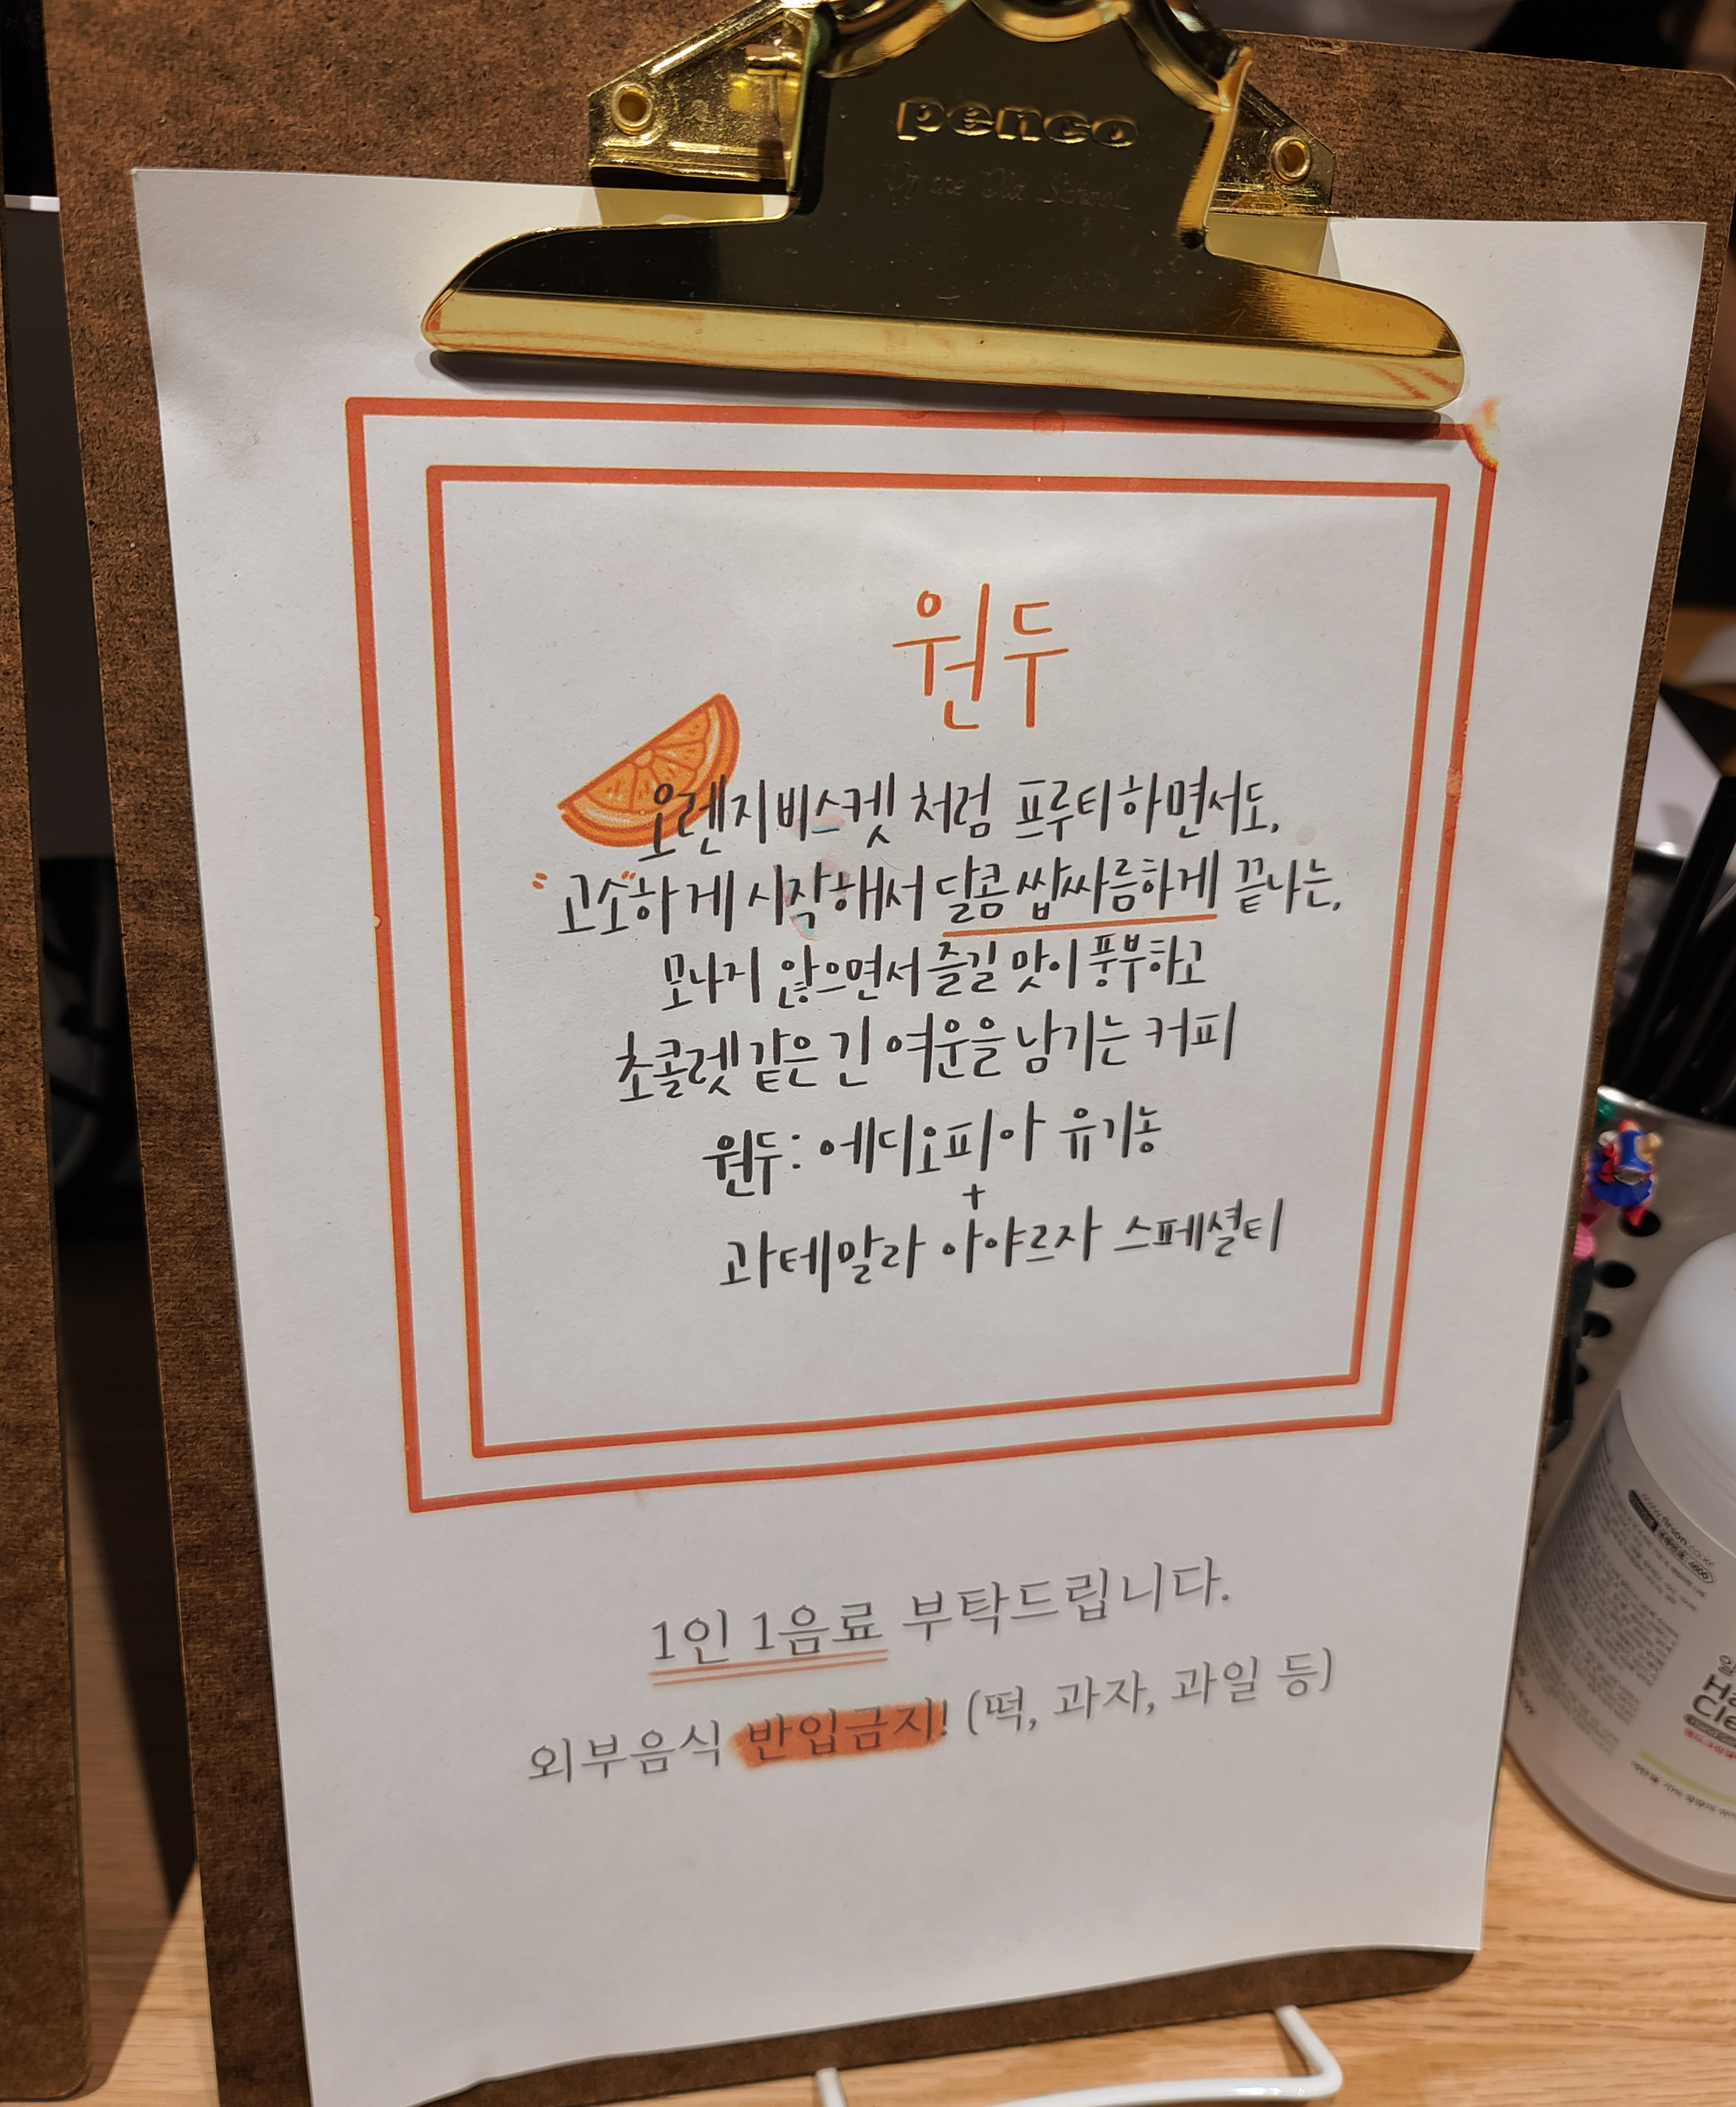 penco
원두
오렌지비스켓 처럼 프루티하면서도,
"고소"하게 시작해서 달콤 쌉싸름하게 끝나는,
모나지 않으면서 즐길 맛이 풍부하고
초콜렛같은 긴 여운을 남기는 커피
원두: 에디오피아 유기농
+
과테말라 아야르자 스페셜티
1인 1음료 부탁드립니다.
외부음식 반입금지! (떡, 과자, 과일 등)